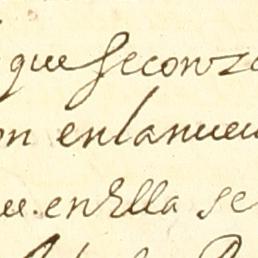 que se conoz
on en la nueu
que. en Ella se